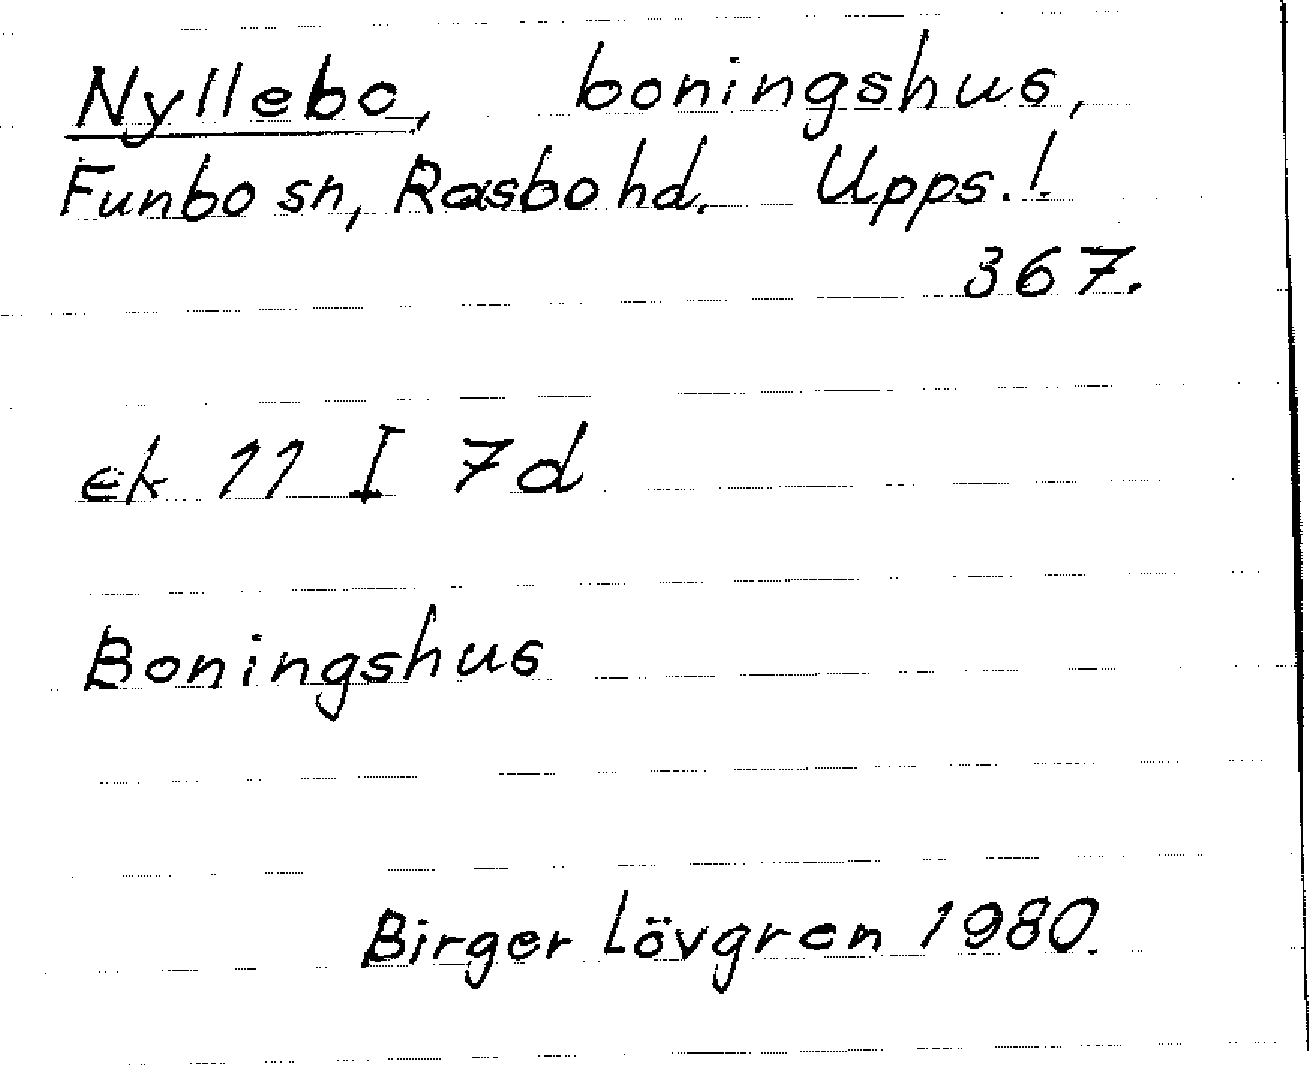 Nyllebo, boningshus,
Funbo sn, Rasbo hd. Upps. l.
367.
ek 11 I 7d
Boningshus
Birger Lövgren 1980.